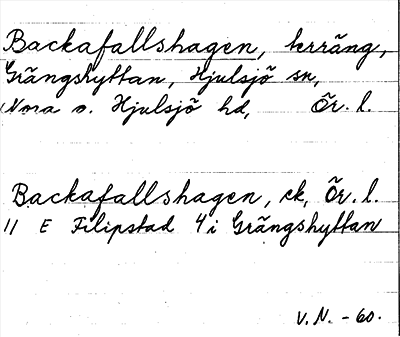 Backafallshagen, terräng,
Grängshyttan, Hjulsjö sn,
Nora o. Hjulsjö hd, Ör. l.
Backafallshagen, ek, Ör. l.
11 E Filipstad 4 i Grängshyttan
V. N. - 60.